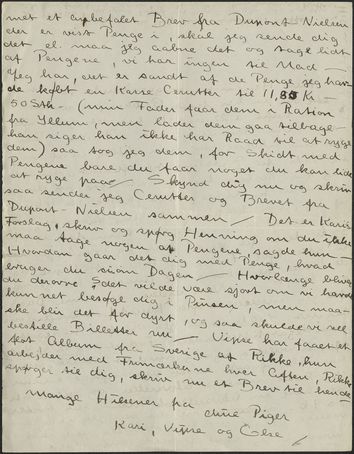 met et anbefalet Brev fra Dupont Nielsen
der er vist Penge i, skal jeg sende dig
det el. maa jeg aabne det og tage lidt
af Pengene, vi har ingen til Mad
Jeg har, det er sandt af de Penge jeg har
de købt en Kasse Cerutter til 11,85 Kr –
50 Stk – (min Fader faar dem i Ration
fra Illum, men lader dem gaa tilbage
han siger han ikke har Raad til at ryge
dem) saa tog jeg dem, for Skidt med
Pengene bare du faar noget du kan lide
at ryge paa – Skynd dig nu og skriv
saa sender jeg Cerutter og Brevet fra
Dupont-Nielsen sammen – Det er Karis
Forslag, skriv og spørg Henning om du ikke
maa tage nogen af Pengene, sagde hun –
Hvordan gaar det dig med Penge, hvad
bruger du siom Dagen – Hvorlænge bliver
du derovre, det vilde være sjovt om vi havde
kunnet besøge dig i Pinsen, men maa-
ske blir det for dyrt, og saa skulde vi vel
bestille Billetter nu – Vipse har faaet et
flot Album fra Sverige af Rikke, hun
arbejder med Frimærkerne hver Aften, Rikke
spørger til dig, skriv nu et Brev til hende
Mange Hilsener fra
dine Piger
Kari, Vipse og Else